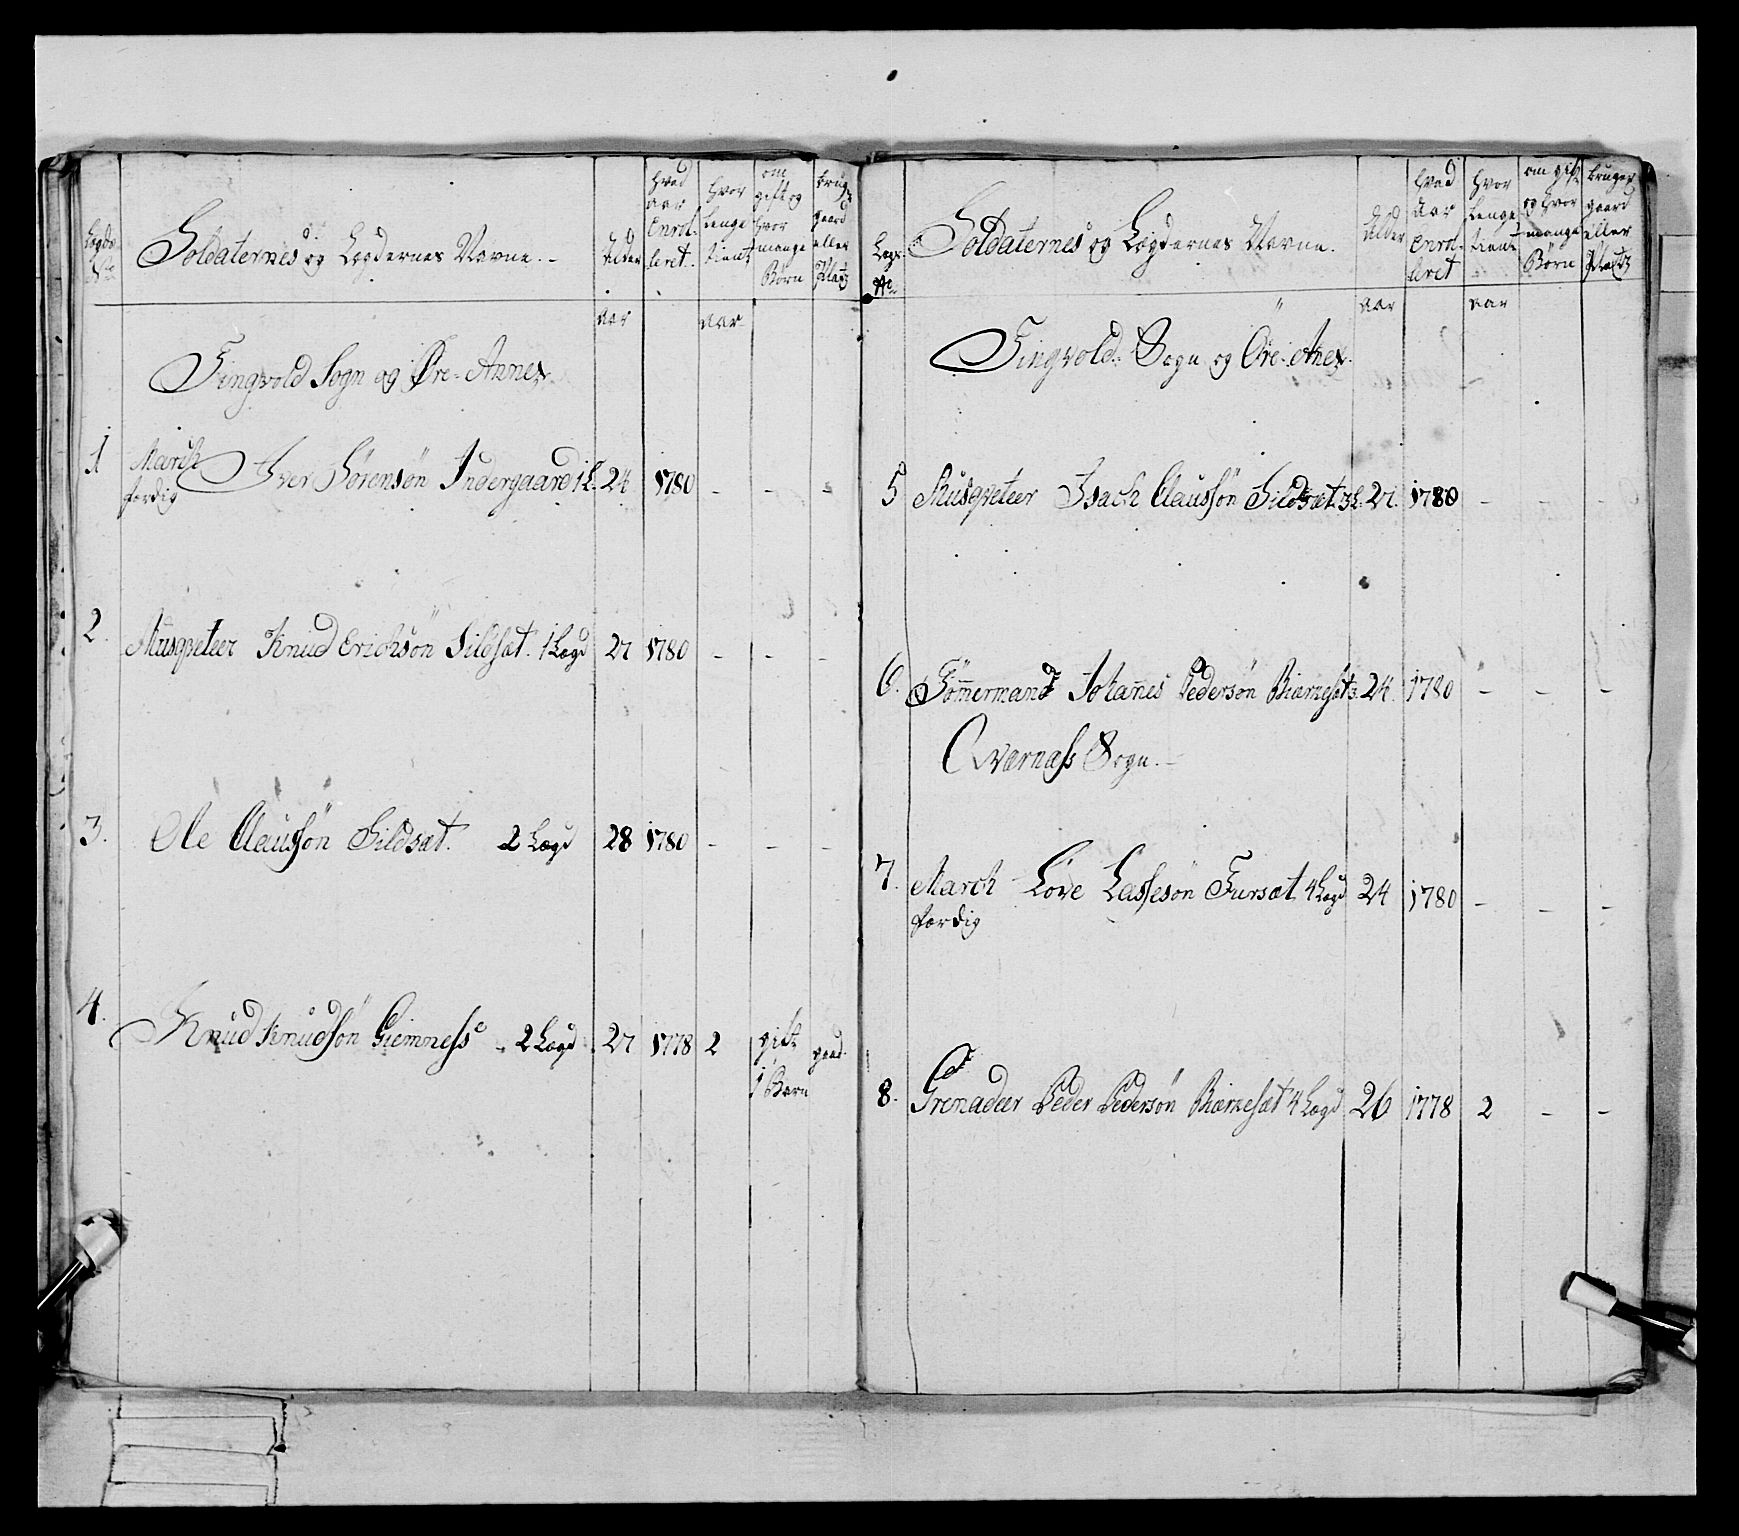 Legds No
Soldaternes og Legdernes Navne.
Alder
hvad aar enrol-leret
hvor lenge tient
om gift og hvor mange Børn
bruger gaard eller Platz
aar
aar
Tingvold Sogn og Øre-Annex
1 March færdig Iver Sørensøn Indergaard 1 L. 24 1780 - - -
2. Musqveteer Knud Erichsøn Sildsæt. 1 Legd 27 1780 - - -
3. Ole Claussøn Sildsæt. 2 Legd 28 1780 - - -
4. Knud Knudssøn Giemness 2 Legd 27 1778 2 gift 1 Barn gaard
Legs No
Soldaternes og Legdernes Navne.
Alder
hvad Aar enrol-leret
hvor lenge tient
om gift og hvor mange Børn
bruger gaard eller Platz
aar
aar
Tingvold Sogn og Øre-Anex
5 Musqveteer Isach Claussøn Sildsæt. 3 L. 27. 1780 - -
6. Tømmermand Johannes Pedersøn Biærkesæt 3. 24. 1780 - - -
Qværnæss Sogn.
7. March færdig Love Lassesøn Fursæt 4 Legd 24 1780 - - -
8. Grenadeer Peder Pedersøn Biærkesæt 4 Legd 26 1778 2 - -